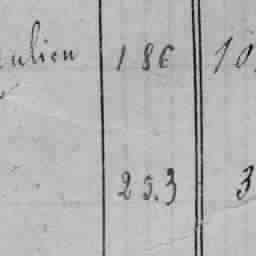 ulien 186 10
253 3